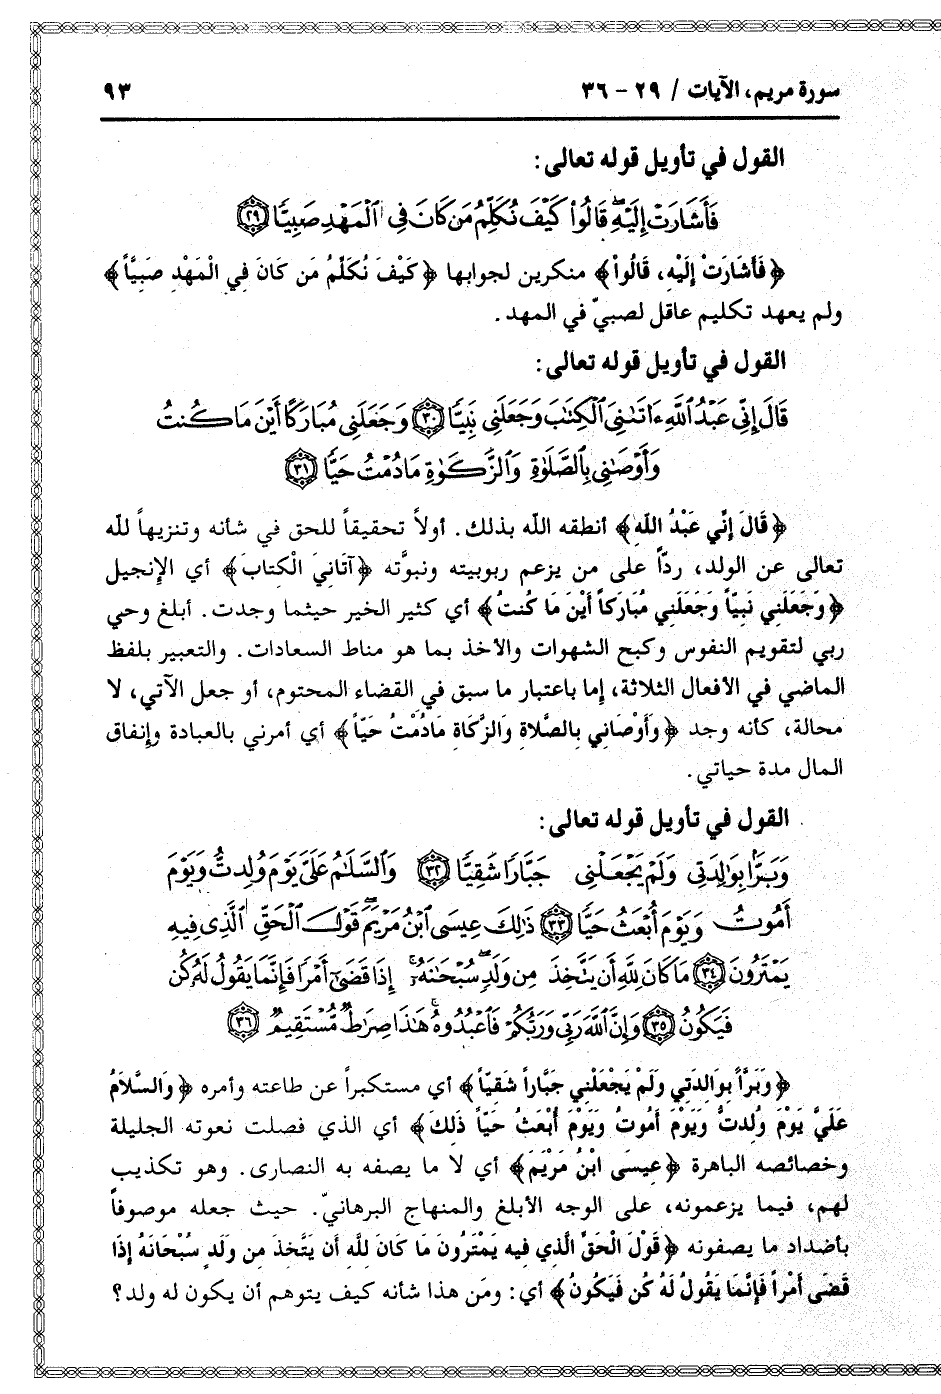 سورة مريم، الآيات / ٢٩ - ٣٦ ٩٣
القول في تأويل قوله تعالى:
فَأَشَارَتْ إِلَيْهِ قَالُوا۟ كَيْفَ نُكَلِّمُ مَن كَانَ فِى ٱلْمَهْدِ صَبِيًّا ٢٩
﴿فَأَشَارَتْ إِلَيْهِ، قَالُوا﴾ منكرين لجوابها ﴿كَيْفَ نُكَلِّمُ مَن كَانَ فِي الْمَهْدِ صَبِيّاً﴾
ولم يعهد تكليم عاقل لصبيّ في المهد.
القول في تأويل قوله تعالى:
قَالَ إِنِّى عَبْدُ ٱللَّهِ ءَاتَىٰنِىَ ٱلْكِتَٰبَ وَجَعَلَنِى نَبِيًّا ٣٠ وَجَعَلَنِى مُبَارَكًا أَيْنَ مَا كُنتُ
وَأَوْصَٰنِى بِٱلصَّلَوٰةِ وَٱلزَّكَوٰةِ مَا دُمْتُ حَيًّا ٣١
﴿قَالَ إِنِّي عَبْدُ اللهِ﴾ أنطقه الله بذلك. أولاً تحقيقاً للحق في شأنه وتنزيهاً لله
تعالى عن الولد، ردّاً على من يزعم ربوبيته ونبوَّته ﴿آتَانِيَ الْكِتَابَ﴾ أي الإنجيل
﴿وَجَعَلَنِي نَبِيّاً وَجَعَلَنِي مُبَارَكاً أَيْنَ مَا كُنتُ﴾ أي كثير الخير حيثما وجدت. أبلغ وحي
ربي لتقويم النفوس وكبح الشهوات والأخذ بما هو مناط السعادات. والتعبير بلفظ
الماضي في الأفعال الثلاثة، إما باعتبار ما سبق في القضاء المحتوم، أو جعل الآتي، لا
محالة، كأنه وجد ﴿وَأَوْصَانِي بِالصَّلَاةِ وَالزَّكَاةِ مَادُمْتُ حَيّاً﴾ أي أمرني بالعبادة وإنفاق
المال مدة حياتي.
القول في تأويل قوله تعالى:
وَبَرًّۢا بِوَٰلِدَتِى وَلَمْ يَجْعَلْنِى جَبَّارًا شَقِيًّا ٣٢ وَٱلسَّلَٰمُ عَلَىَّ يَوْمَ وُلِدتُّ وَيَوْمَ
أَمُوتُ وَيَوْمَ أُبْعَثُ حَيًّا ٣٣ ذَٰلِكَ عِيسَى ٱبْنُ مَرْيَمَ قَوْلَ ٱلْحَقِّ ٱلَّذِى فِيهِ
يَمْتَرُونَ ٣٤ مَا كَانَ لِلَّهِ أَن يَتَّخِذَ مِن وَلَدٍ سُبْحَٰنَهُۥٓ إِذَا قَضَىٰٓ أَمْرًا فَإِنَّمَا يَقُولُ لَهُۥ كُن
فَيَكُونُ ٣٥ وَإِنَّ ٱللَّهَ رَبِّى وَرَبُّكُمْ فَٱعْبُدُوهُ هَٰذَا صِرَٰطٌ مُّسْتَقِيمٌ ٣٦
﴿وَبَرّاً بِوَالِدَتِي وَلَمْ يَجْعَلْنِي جَبَّاراً شَقِيّاً﴾ أي مستكبراً عن طاعته وأمره ﴿وَالسَّلَامُ
عَلَيَّ يَوْمَ وُلِدتُّ وَيَوْمَ أَمُوتُ وَيَوْمَ أُبْعَثُ حَيّاً ذَلِكَ﴾ أي الذي فصلت نعوته الجليلة
وخصائصه الباهرة ﴿عِيسَى ابْنُ مَرْيَمَ﴾ أي لا ما يصفه به النصارى. وهو تكذيب
لهم، فيما يزعمونه، على الوجه الأبلغ والمنهاج البرهانيّ. حيث جعله موصوفاً
بأضداد ما يصفونه ﴿قَوْلَ الْحَقِّ الَّذِي فِيهِ يَمْتَرُونَ مَا كَانَ لِلَّهِ أَن يَتَّخِذَ مِن وَلَدٍ سُبْحَانَهُ إِذَا
قَضَى أَمْراً فَإِنَّمَا يَقُولُ لَهُ كُن فَيَكُونُ﴾ أي: ومَن هذا شأنه كيف يتوهم أن يكون له ولد؟